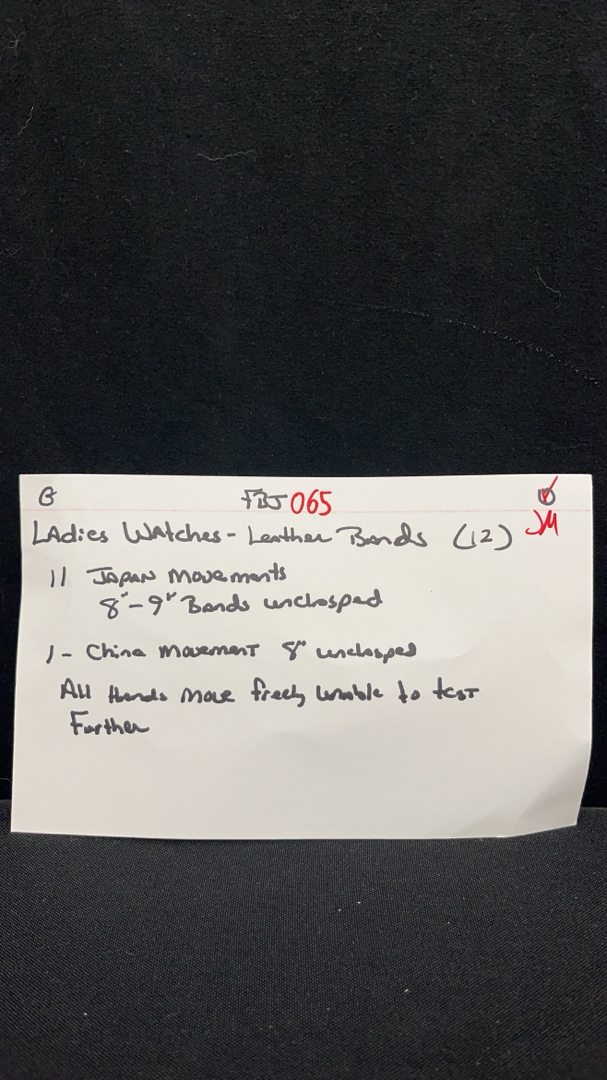 G FBJ 065
Ladies Watches - Leather Bands (12) JM
11 Japan Movements
8" - 9" Bands unclasped
1 - China Movement 8" unclasped
All Hands move freely unable to test
Further